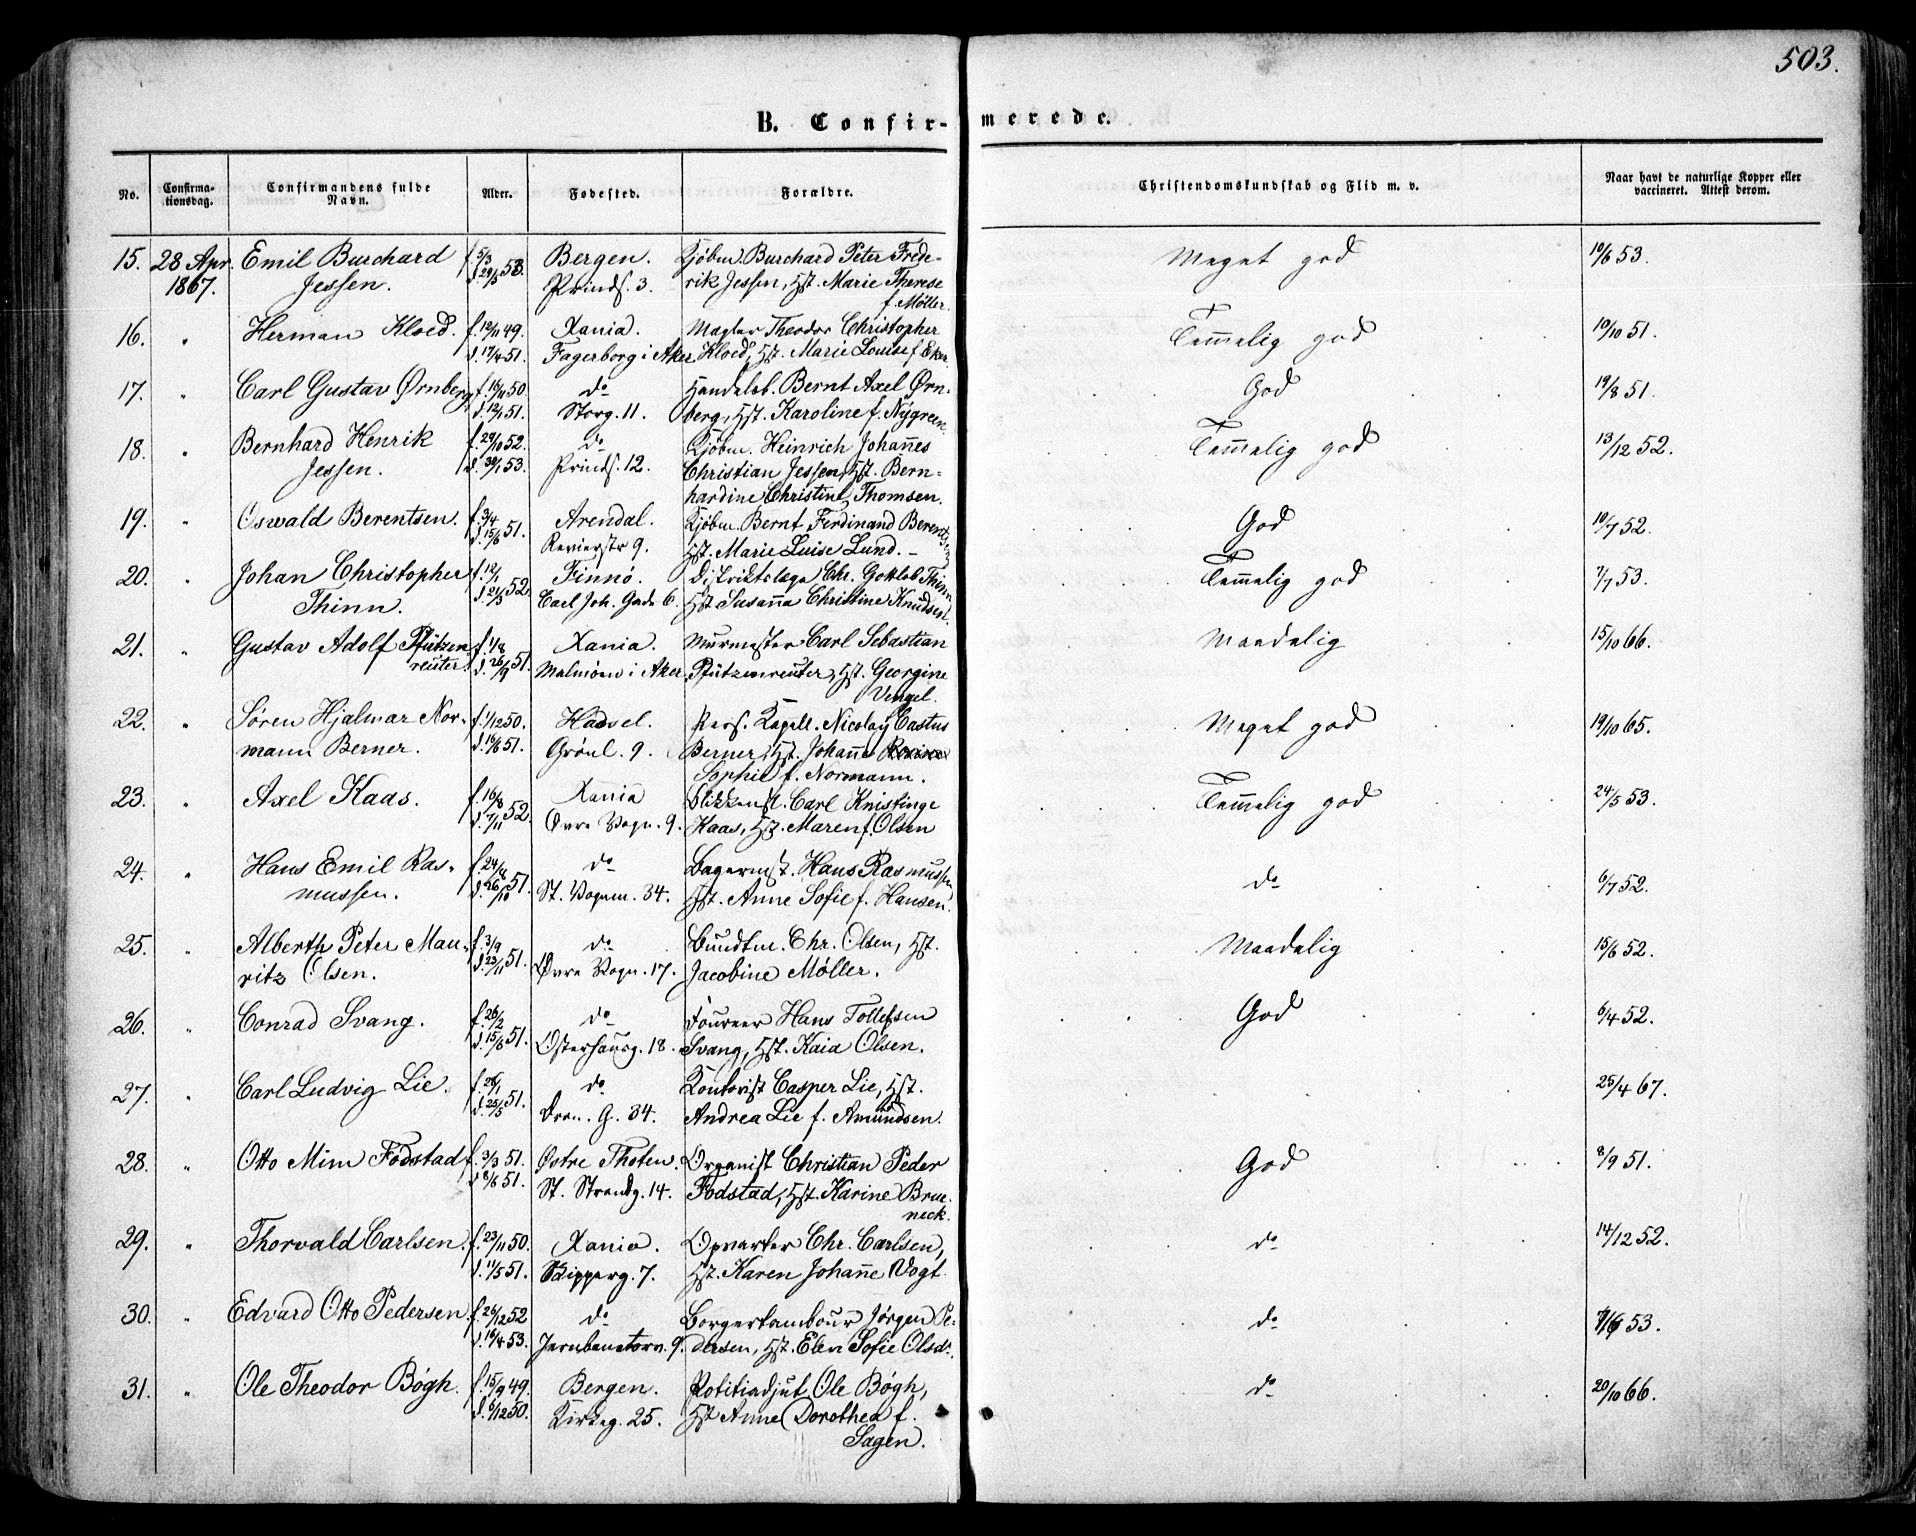 503.
B. Confirmerede.
No. Confirmationsdag. Confirmandens fulde Navn. Alder. Fødested. Forældre. Christendomskundskab og Flid m. v. Naar havt de naturlige Kopper eller vaccineret. Attest derom.
15. 28 Apr. Emil Burchard f. 5/3 Bergen. Kjøbm. Burchard Peter Frede- Meget god 10/6 53.
1867. Jessen. d. 29/5 53. Prinds. 3. rik Jessen, Hst. Marie Therese
f. Møller.
16. " Herman Kloed. f. 12/11 49. Xania. Mægler Theodor Christopher Temmelig god 10/10 51.
d. 17/4 51. Fagerborg i Aker Kloed, Hst. Marie Louise f. Eker.
17. " Carl Gustav Ørnberg f. 16/11 50 do Handelsb. Bernt Axel Ørn- God 19/8 51.
d. 12/1 51. Storg. 11. berg, Hst. Karoline f. Nygreen.
18. " Bernhard Henrik f. 28/10 52. do Kjøbm. Heinrich Johannes Temmelig god 13/12 52.
Jessen. d. 30/1 53. Prinds. 12. Christian Jessen, Hst. Bern-
hardine Christine Thomsen.
19. " Oswald Berentsen. f. 3/4 Arendal. Kjøbm. Bernt Ferdinand Berentsen God 10/7 52.
d. 15/6 51. Revierstr 9. Hst. Marie Luise Lund. –
20. " Johan Christopher f. 12/1 Finnö. Distriktslæge Chr. Gottlob Thinn Temmelig god 7/7 53.
Thinn. d. 21/5 52. Carl Joh. Gade 6. Hst. Susanna Christine Knudsen.
21. " Gustav Adolf Pfützen f. 1/8 Xania. Murmester Carl Sebastian Maadelig 15/10 66.
reuter. d. 26/9 51. Malmöen i Aker. Pfützenreuter, Hst. Georgine
Vengel.
22. " Søren Hjalmar Nor- f. 1/12 50. Hadsel. Pers. Kapell. Nicolay Castus Meget god 19/10 65.
mann Berner. d. 16/6 51. Grönl. 9. Berner, Hst. Johanne
Sophie f. Normann.
23. " Axel Kaas. f. 16/8 Xania Blikkensl. Carl Knisfinge Temmelig god 24/5 53.
d. 7/11 52. Øvre Vogn. 9. Kaas, Hst. Maren f. Olsen
24. " Hans Emil Ras- f. 24/8 do Bagermst. Hans Rasmussen do 6/7 52.
mussen. d. 26/10 51. St. Vognm. 34. Hst. Anne Sofie f. Hansen.
25. " Alberth Peter Mau- f. 3/9 do Bundtm. Chr. Olsen, Hst. Maadelig 15/6 52.
ritz Olsen. d. 23/11 51. Øvre Vogn. 17. Jacobine Møller.
26. " Conrad Svang. f. 26/2 do Foureer Hans Tollefsen God 6/4 52.
d. 15/6 51. Osterhausg. 18. Svang, Hst. Kaia Olsen.
27. " Carl Ludvig Lie. f. 28/1 do Kontorist Casper Lie, Hst. 25/4 67.
d. 25/5 51. Dron. G. 34. Andrea Lie f. Amundsen.
28. " Otto Mim Fodstad f. 3/3 51. Østre Thoten. Organist Christian Peder God 8/9 51.
d. 8/6 51. St. Strandg. 14. Fodstad, Hst. Karine Brue-
neck.
29. " Thorvald Carlsen. f. 23/11 50. Xania. Opvarter Chr. Carlsen, do 14/12 52.
d. 11/5 51. Skipperg. 7. Hst. Karen Johanne Vogt.
30. " Edvard Otto Pedersen. f. 26/12 52 do Borgertambour Jørgen Pe- do 53.
d. 16/4 53. Jernbanetorv. 9. dersen, Hst. Elen Sofie Olsdr.
31. " Ole Theodor Bøgh. f. 15/9 49. Bergen. Politiadjut. Ole Bøgh, do 20/10 66.
d. 6/12 50. Kirkeg. 25. Hst Anne Dorothea f.
Sagen.